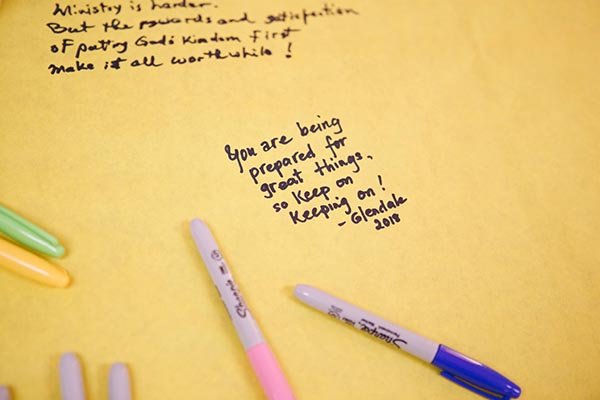 Ministry is harder.
But the rewards and satisfaction
of putting God's Kingdom first
make it all worthwhile!
You are being
prepared for
great things,
so keep on
Keeping on!
- Glendale
2018
Sharpie
Sharpie